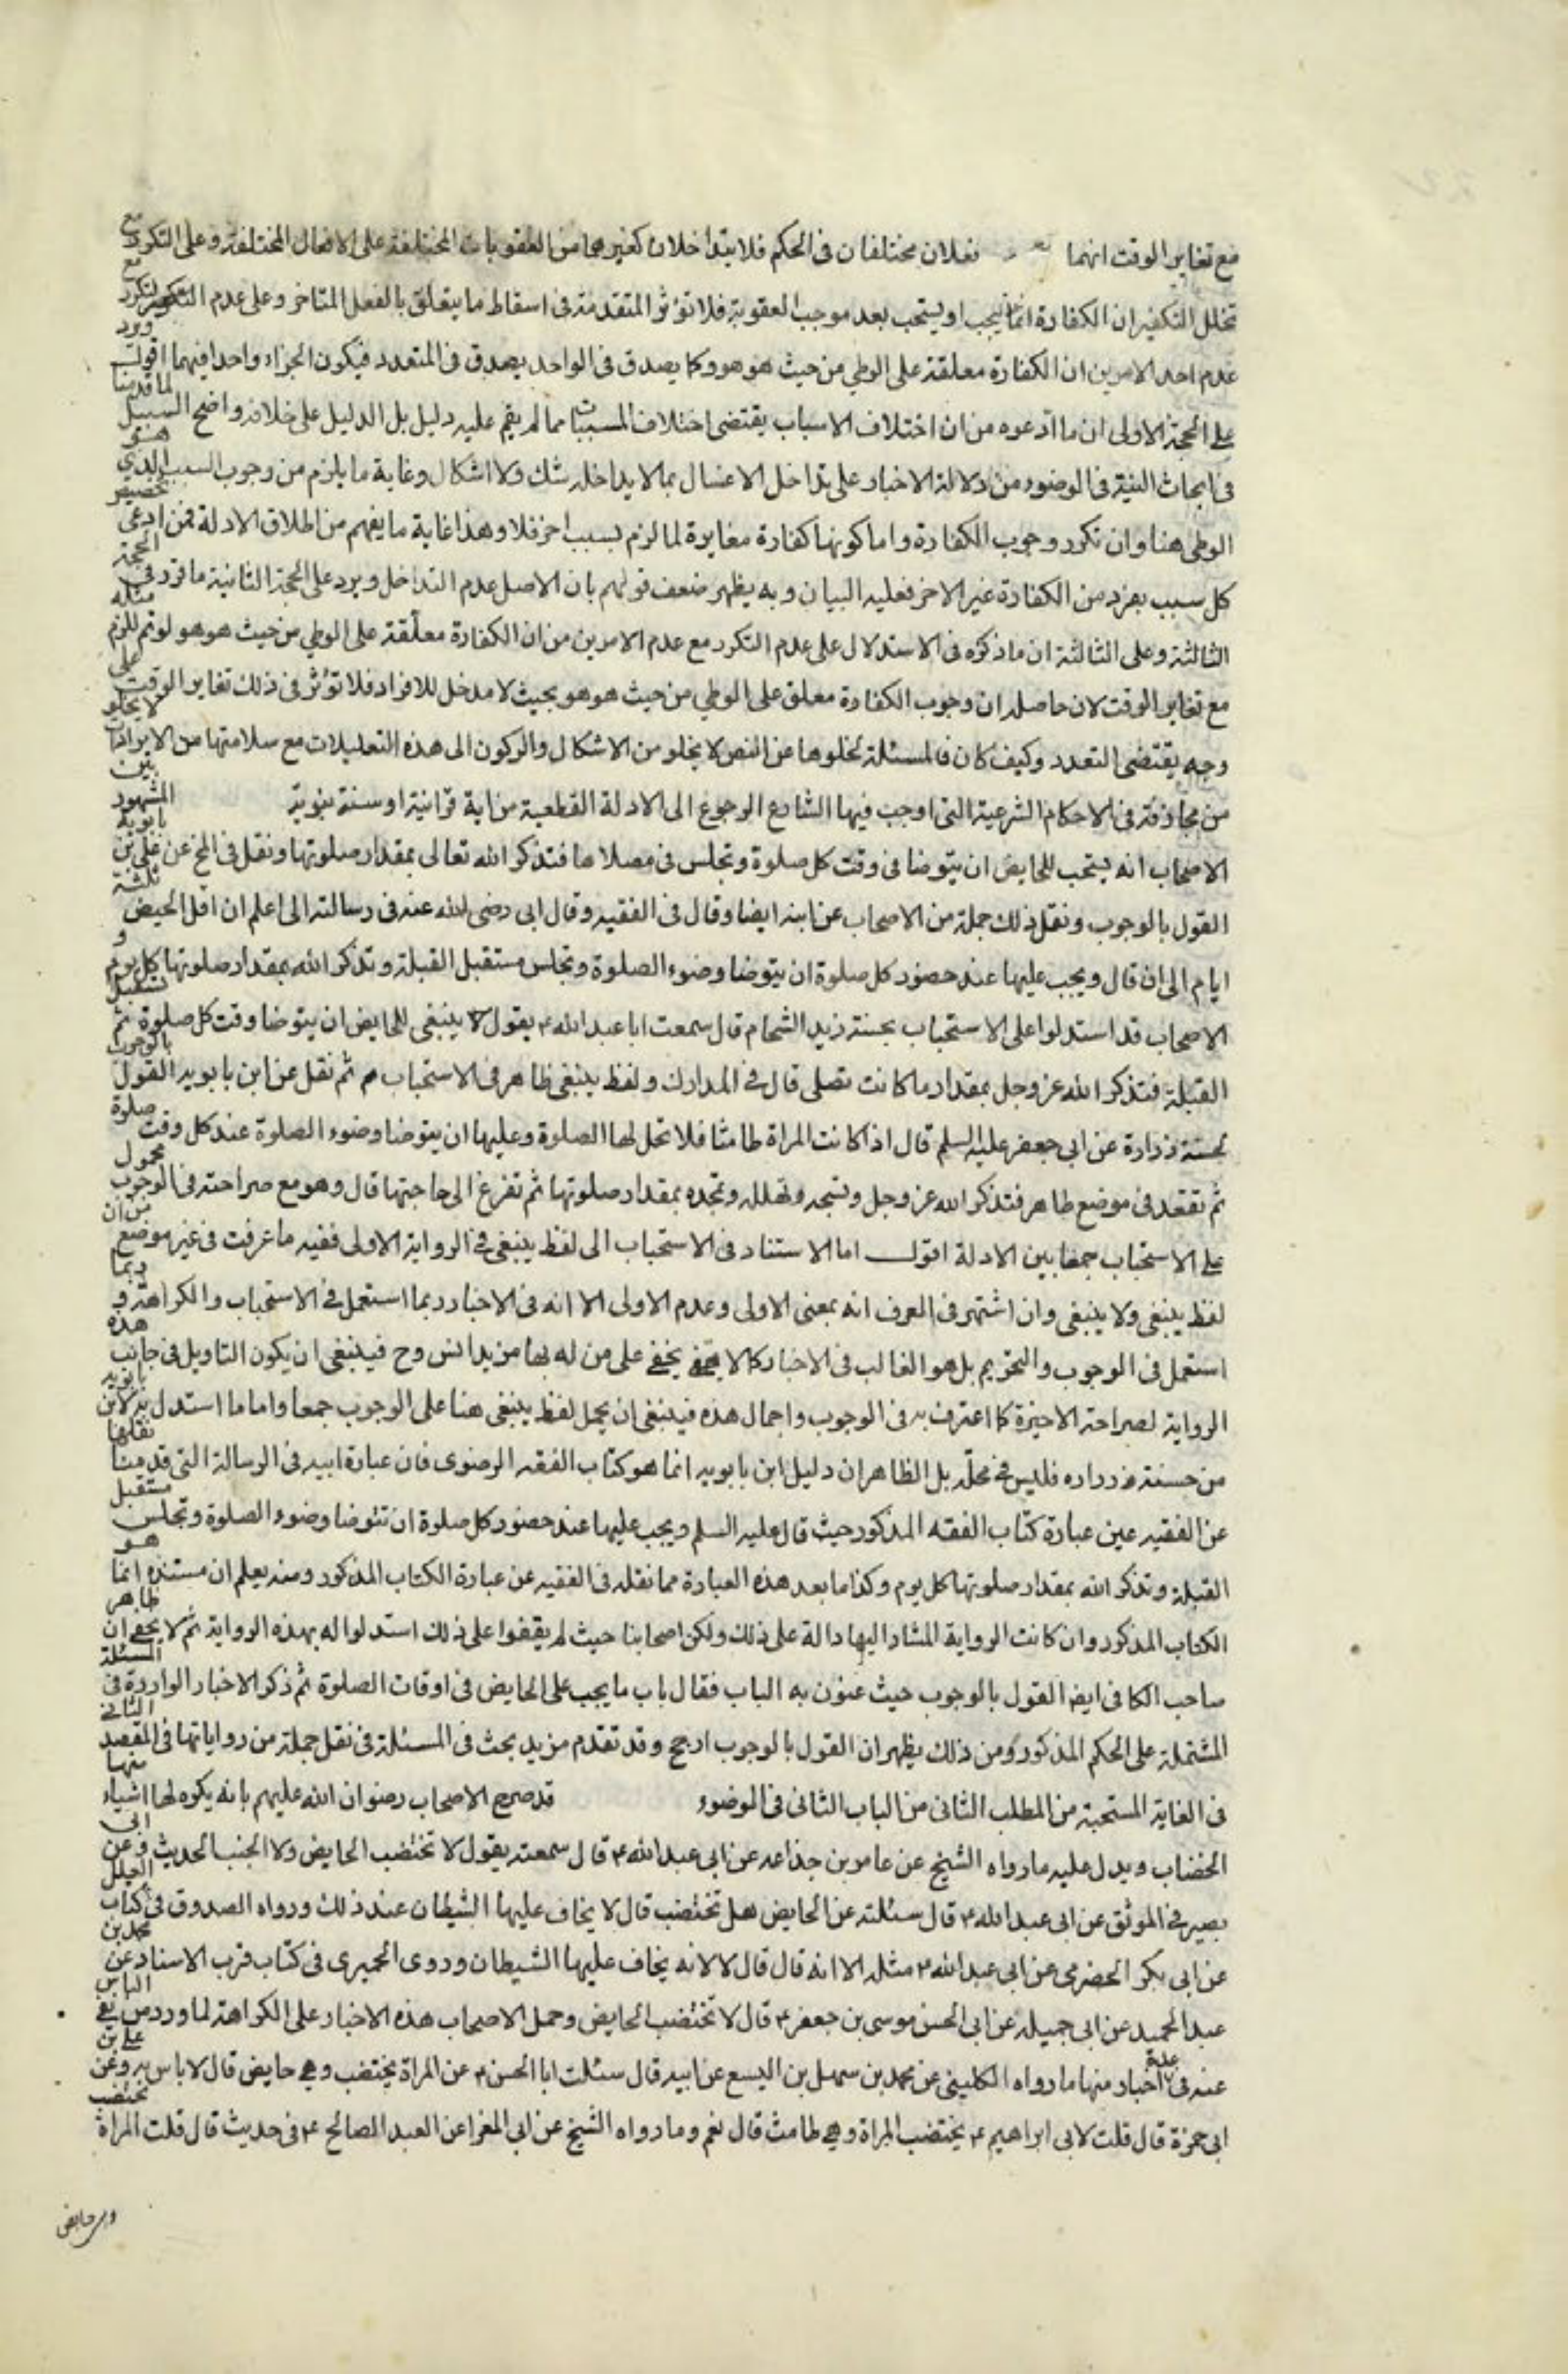 مع تغاير الوقت انهما فعلان مختلفان فى الحكم فلا يتداخلان كغيرهما من العقوبات المختلفة على الافعال المختلفة وعلى التكرر مع
تخلل التكفير ان الكفارة انما تجب او يستحب بعد موجب العقوبة فلا تؤثر المتقدمة فى اسقاط ما يتعلق بالفعل المتاخر وعلى عدم التكرر مع
عدم احد الامرين ان الكفارة معلقة على الوطي من حيث هو هو وكما يصدق فى الواحد يصدق فى المتعدد فيكون الجزاء واحدا فيهما اقول ويرد
على الحجة الاولى ان ما ادعوه من ان اختلاف الاسباب يقتضى اختلاف المسببات مما لم يقم عليه دليل بل الدليل على خلافه واضح السبيل لما قدمنا
فى ابحاث النية فى الوضوء من دلالة الاخبار على تداخل الاغسال بما لا يداخله شك ولا اشكال وغاية ما يلزم من وجوب السبب الذي هو
الوطى هنا وان تكرر وجوب الكفارة واما كونها كفارة مغايرة لما لزم بسبب اخر فلا وهذا غاية ما يفهم من اطلاق الادلة فمن ادعى تخصيص
كل سبب بفرد من الكفارة غير الاخر فعليه البيان وبه يظهر ضعف قولهم بان الاصل عدم التداخل ويرد على الحجة الثانية ما قرر فى الحجة
الثالثة وعلى الثالثة ان ما ذكره فى الاستدلال على عدم التكرر مع عدم الامرين من ان الكفارة معلقة على الوطي من حيث هو هو لو تم للزم مثله
مع تغاير الوقت لان حاصله ان وجوب الكفارة معلق على الوطي من حيث هو هو بحيث لا مدخل للافراد فلا تؤثر فى ذلك تغاير الوقت على
وجه يقتضى التعدد وكيف كان فالمسئلة لخلوها عن النص لا يخلو من الاشكال والركون الى هذه التعليلات مع سلامتها من الايرادات لا يخلو
من مجازفة فى الاحكام الشرعية التى اوجب فيها الشارع الرجوع الى الادلة القطعية من اية قرانية او سنة نبوية المشهور بين
الاصحاب انه يستحب للحايض ان يتوضا فى وقت كل صلوة وتجلس فى مصلاها فتذكر الله تعالى بمقدار صلوتها ونقل فى المخ عن على بن بابويه
القول بالوجوب ونقل ذلك جملة من الاصحاب عن ابنه ايضا وقال فى الفقيه وقال ابى رضى الله عنه فى رسالته الى اعلم ان اقل الحيض ثلثة
ايام الى ان قال ويجب عليها عند حضور كل صلوة ان يتوضا وضوء الصلوة وتجلس مستقبل القبلة وتذكر الله بمقدار صلوتها كل يوم و
الاصحاب قد استدلوا على الاستحباب بحسنة زيد الشحام قال سمعت ابا عبد الله ع يقول لا ينبغى للحايض ان يتوضا وقت كل صلوة ثم تستقبل
القبلة فتذكر الله عز وجل بمقدار ما كانت تصلى قال فى المدارك ولفظ ينبغى ظاهر فى الاستحباب م ثم نقل عن ابن بابويه القول بالوجوب
لحسنة زرارة عن ابى جعفر عليه السلم قال اذا كانت المراة طامثا فلا تحل لها الصلوة وعليها ان يتوضا وضوء الصلوة عند كل وقت صلوة
ثم تقعد فى موضع طاهر فتذكر الله عز وجل وتسبحه وتهلله وتحمده بمقدار صلوتها ثم تفرغ الى حاجتها قال وهو مع صراحته فى الوجوب محمول
على الاستحباب جمعا بين الادلة اقول اما الاستناد فى الاستحباب الى لفظ ينبغى فى الرواية الاولى ففيه ما عرفت فى غير موضع من ان
لفظ ينبغى ولا ينبغى وان اشتهر فى العرف انه بمعنى الاولى وعدم الاولى الا انه فى الاخبار ربما استعمل فى الاستحباب والكراهة و ربما
استعمل فى الوجوب والتحريم بل هو الغالب فى الاخبار كما لا يخفى على من له بها مزيد انس وح فينبغى ان يكون التاويل فى جانب هذه
الرواية لصراحة الاخيرة كما اعترف به فى الوجوب واجمال هذه فينبغى ان يحمل لفظ ينبغى هنا على الوجوب جمعا واما ما استدل به لابن بابويه
من حسنة زراره فليس فى محله بل الظاهر ان دليل ابن بابويه انما هو كتاب الفقه الرضوى فان عبارة ابيه فى الرسالة التى قدمنا نقلها
عن الفقيه عين عبارة كتاب الفقه المذكور حيث قال عليه السلم ويجب عليها عند حضور كل صلوة ان تتوضا وضوء الصلوة وتجلس مستقبل
القبلة وتذكر الله بمقدار صلوتها كل يوم وكذا ما بعد هذه العبارة مما نقله فى الفقيه عن عبارة الكتاب المذكور ومنه يعلم ان مستنده انما هو
الكتاب المذكور وان كانت الرواية المشار اليها دالة على ذلك ولكن اصحابنا حيث لم يقفوا على ذلك استدلوا له بهذه الرواية ثم لا يخفى ان ظاهر
صاحب الكافى ايضا القول بالوجوب حيث عنون به الباب فقال باب ما يجب على الحايض فى اوقات الصلوة ثم ذكر الاخبار الواردة فى المسئلة
المشتملة على الحكم المذكور ومن ذلك يظهر ان القول بالوجوب ارجح وقد تقدم مزيد بحث فى المسئلة فى نقل جملة من رواياتها فى المقصد الثانى
فى الغاية المستحبة من المطلب الثانى من الباب الثانى فى الوضوء قد صرح الاصحاب رضوان الله عليهم بانه يكره لها اشياء منها
الخضاب ويدل عليه ما رواه الشيخ عن عامر بن جذاعه عن ابى عبد الله ع قال سمعته يقول لا تختضب الحايض ولا الجنب الحديث وعن ابى
بصير فى الموثق عن ابى عبد الله ع قال سئلته عن الحايض هل تختضب قال لا يخاف عليها الشيطان عند ذلك ورواه الصدوق فى كتاب العلل
عن ابى بكر الحضرمى عن ابى عبد الله ع مثله الا انه قال قال لا لانه يخاف عليها الشيطان وروى الحميرى فى كتاب قرب الاسناد عن محمد بن
عبد الحميد عن ابى جميله عن ابى الحسن موسى بن جعفر ع قال لا تختضب الحايض وحمل الاصحاب هذه الاخبار على الكراهة لما ورد من نفى الباس
عنه فى عدة اخبار منها ما رواه الكلينى عن محمد بن سهل بن اليسع عن ابيه قال سئلت ابا الحسن ع عن المراة يختضب وهى حايض قال لا باس به وعن على بن
ابى حمزة قال قلت لابى ابراهيم ع يختضب المراة وهى طامث قال نعم وما رواه الشيخ عن ابى المغرا عن العبد الصالح ع فى حديث قال قلت المراة تختضب
وهى حايض